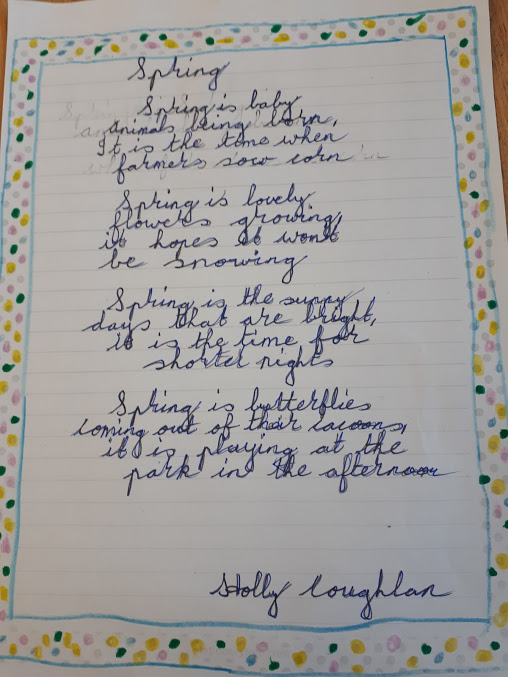 Spring
Spring is baby
animals being born,
It is the time when
farmers sow corn
Spring is lovely
flowers growing,
it hopes it wont
be snowing
Spring is the sunny
days that are bright,
it is the time for
shorter nights
Spring is butterflies
coming out of their cacoons,
it is playing at the
park in the afternoon
Holly Coughlan